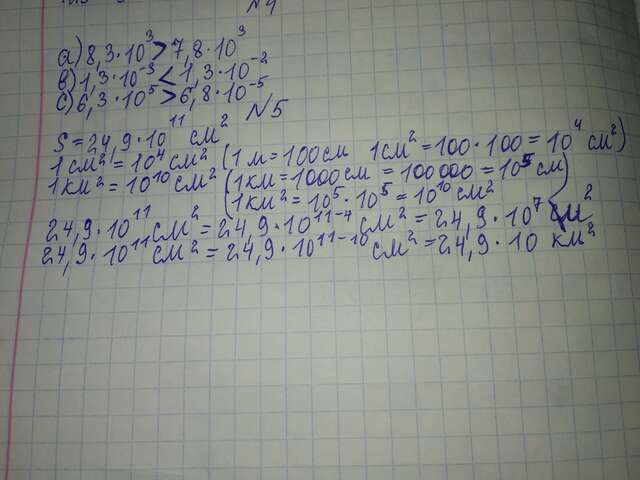 №4
a) 8,3·10³ > 7,8·10³
в) 1,3·10⁻³ < 1,3·10⁻²
c) 6,3·10⁵ > 6,8·10⁻⁵
№5
S = 24,9·10¹¹ см²
1 см² = 10⁴ см² (1 м = 100 см 1 см² = 100·100 = 10⁴ см²)
1 км² = 10¹⁰ см² (1 км = 1000 см = 100 000 = 10⁵ см)
1 км² = 10⁵·10⁵ = 10¹⁰ см²
24,9·10¹¹ см² = 24,9·10¹¹⁻⁴ см² = 24,9·10⁷ см²
24,9·10¹¹ см² = 24,9·10¹¹⁻¹⁰ см² = 24,9·10 км²